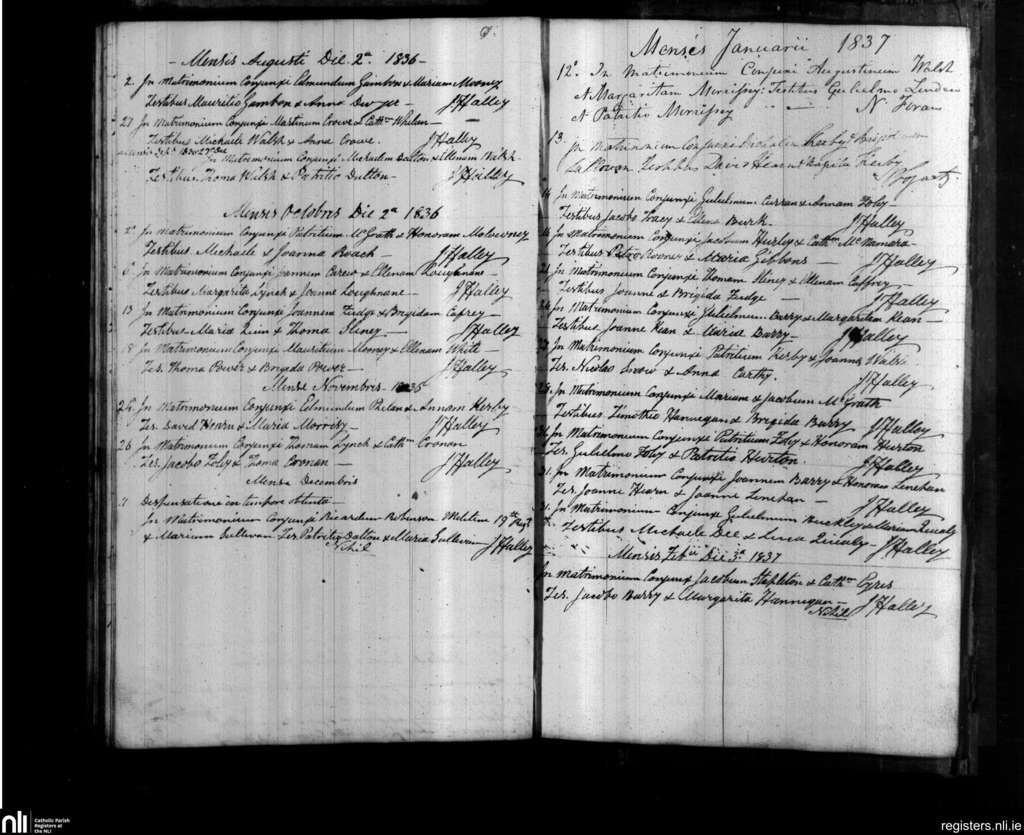 - Mensis Augusti Die 2a 1836 -
2. In Matrimonium Conjunxi Edmundum Gambon & Mariam Mooney
Testibus Mauritio Gambon & Anna Dwyer - J Halley
27 In Matrimonium Conjunxi Martinum Crowe & Cathn Whelan -
Testibus Michaele Walsh & Anna Crowe. J Halley
In Matrimonium Conjunxi Michaelem Dalton & Ellenam Wilsh
Testibus Thoma Wilsh & Patritio Dutton - J Halley
Mensis Octobris Die 2a 1836
2a In Matrimonium Conjunxi Patritium McGrath & Honoram Molverney
Testibus Michaele & Joanna Roach - J Halley
6 In Matrimonium Conjunxi Joannem Brew & Ellenam Loughnane -
Testibus Margarita Lynch & Joanne Loughnane - J Halley
13 In Matrimonium Conjunxi Joannem Fudge & Brigidam Cafrey -
Testibus Maria Quin & Thoma Sliney - J Halley
18 In Matrimonium Conjunxi Mauritium Mooney & Ellenam White -
Tes. Thoma Power & Brigida Power - J Halley
Mense Novembris
25 In Matrimonium Conjunxi Edmundum Phelan & Annam Herby
Tes. David Hearn & Maria Morrisy - J Halley
26 In Matrimonium Conjunxi Thomam Lynch & Cathn Coonan -
Tes. Jacobo Foly & Thoma Coonan - J Halley
Mense Decembris
7 Dispensatione in tempore obtenta -
In Matrimonium Conjunxi Ricardum Robinson Militem 19th Regt
& Mariam Sullivan Tes. Patritio Dalton & Maria Sullivan J Halley
Nihil
Mensis Januarii 1837
12o. In Matrimonium Conjunxi Augustinum Walsh
et Margaritam Morrissey: Testibus Gulielmo Linden
et Patritio Morrissey N. Foran
13. In Matrimonium Conjunxi Kerby & Brigidam
Testibus David Hearn & Brigita Kerby
J Fogarty
14 In Matrimonium Conjunxi Gulielmum Curran & Annam Foly -
Testibus Jacobo Tracy & Ellena Burk - J Halley
In Matrimonium Conjunxi Jacobum Hurley & Cathn McNamara -
Testibus Petro & Maria Gibbons - J Halley
In Matrimonium Conjunxi Thomam Sliney & Ellenam Caffrey
Testibus Joanne & Brigida Fudge - J Halley
In Matrimonium Conjunxi Gulielmum Barry & Margaritam Kean -
Testibus Joanne Kean & Maria Barry - J Halley
In Matrimonium Conjunxi Patritium Kerby & Joannam Walsh
Tes. Nicolao & Anna Carthy. J Halley
28. In Matrimonium Conjunxi Mariam & Jacobum McGrath
Testibus Timothio Hannegan & Brigida Barry J Halley
31 In Matrimonium Conjunxi Patritium Foly & Honoram Hurton
Tes. Gulielmo Foly & Patritio Hurton. J Halley
31. In Matrimonium Conjunxi Joannem Barry & Honoram Lenehan
Tes. Joanne Hearn & Joanne Lenehan - J Halley
31. In Matrimonium Conjunxi Gulielmum Buckley & Mariam Quealy
Testibus Michaele Dee & Quealy - J Halley
Mensis Febii Die 3a 1837
In Matrimonium Conjunxi Jacobum Stapleton & Cathn Eyres
Tes. Jacobo Barry & Margarita Hannegan - J Halley
Nihil
nli Catholic Parish
Registers at
the NLI
registers.nli.ie